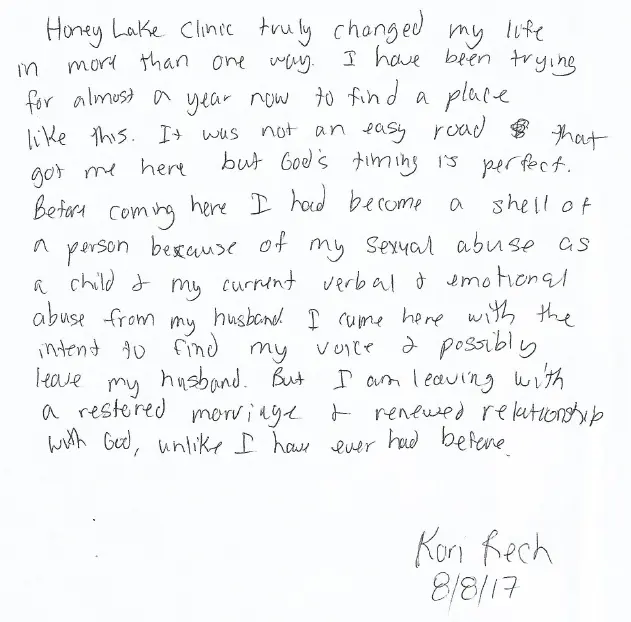 Honey Lake Clinic truly changed my life
in more than one way. I have been trying
for almost a year now to find a place
like this. It was not an easy road that
got me here but God's timing is perfect.
Before coming here I had become a shell of
a person because of my sexual abuse as
a child & my current verbal & emotional
abuse from my husband. I came here with the
intent to find my voice & possibly
leave my husband. But I am leaving with
a restored marriage & renewed relationship
with God, unlike I have ever had before.
Kori Rech
8/8/17